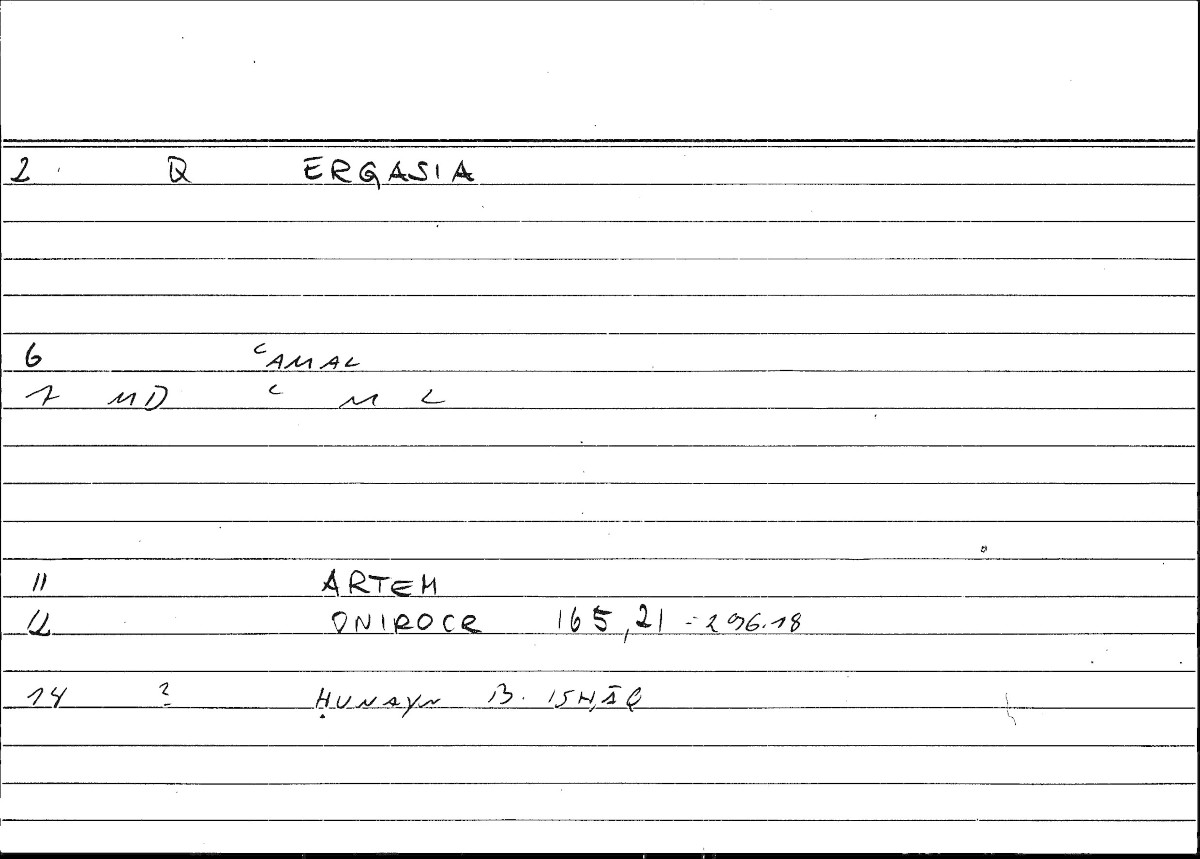 2 Q ERGASIA
6 ʿAMAL
7 MD ʿ M L
11 ARTEM
12 ONIROCR 165,21 = 296.18
14 ? ḤUNAYN B. ISḤĀQ